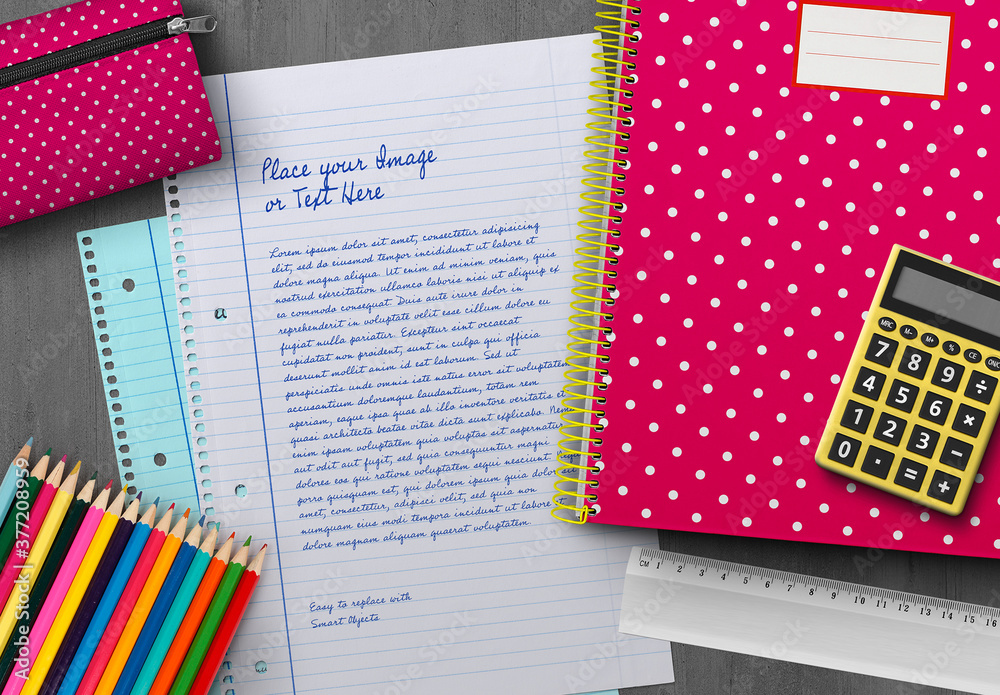 Place your Image
or Text Here
Lorem ipsum dolor sit amet, consectetur adipisicing
elit, sed do eiusmod tempor incididunt ut labore et
dolore magna aliqua. Ut enim ad minim veniam, quis
nostrud exercitation ullamco laboris nisi ut aliquip ex
ea commodo consequat. Duis aute irure dolor in
reprehenderit in voluptate velit esse cillum dolore eu
fugiat nulla pariatur. Excepteur sint occaecat
cupidatat non proident, sunt in culpa qui officia
deserunt mollit anim id est laborum. Sed ut
perspiciatis unde omnis iste natus error sit voluptatem
accusantium doloremque laudantium, totam rem
aperiam, eaque ipsa quae ab illo inventore veritatis et
quasi architecto beatae vitae dicta sunt explicabo. Nemo
enim ipsam voluptatem quia voluptas sit aspernatur
aut odit aut fugit, sed quia consequuntur magni
dolores eos qui ratione voluptatem sequi nesciunt.
porro quisquam est, qui dolorem ipsum quia dolor sit
amet, consectetur, adipisci velit, sed quia non
numquam eius modi tempora incidunt ut labore et
dolore magnam aliquam quaerat voluptatem.
Easy to replace with
Smart Objects
MRC M- M+ % CE ON/C
7 8 9 ÷
4 5 6 ×
1 2 3 −
0 . = +
CM 1 2 3 4 5 6 7 8 9 10 11 12 13 14 15 16
Adobe Stock | 377208959